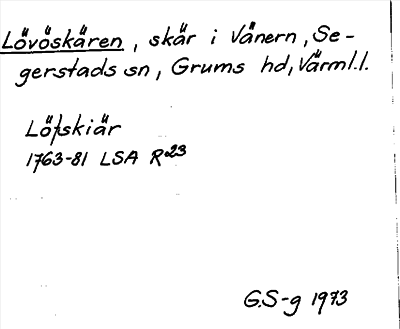 Lövöskären, skär i Vänern, Se-
gerstads sn, Grums hd, Värml.l.
Löfskiär
1763-81 LSA R 23
G.S-g 1973